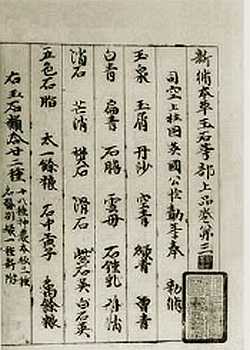 新脩本草玉石等部上品卷第三
司空上柱國英國公臣勣等奉 勅脩
玉泉 玉屑 丹沙 空青 綠青 曾青
白青 扁青 石膽 雲母 石鍾乳 朴消
消石 芒消 礬石 滑石 紫石英 白石英
五色石脂 太一餘粮 石中黃子 禹餘粮
右玉石類合廿二種
十八種神農本經三種
名醫別錄一種新附